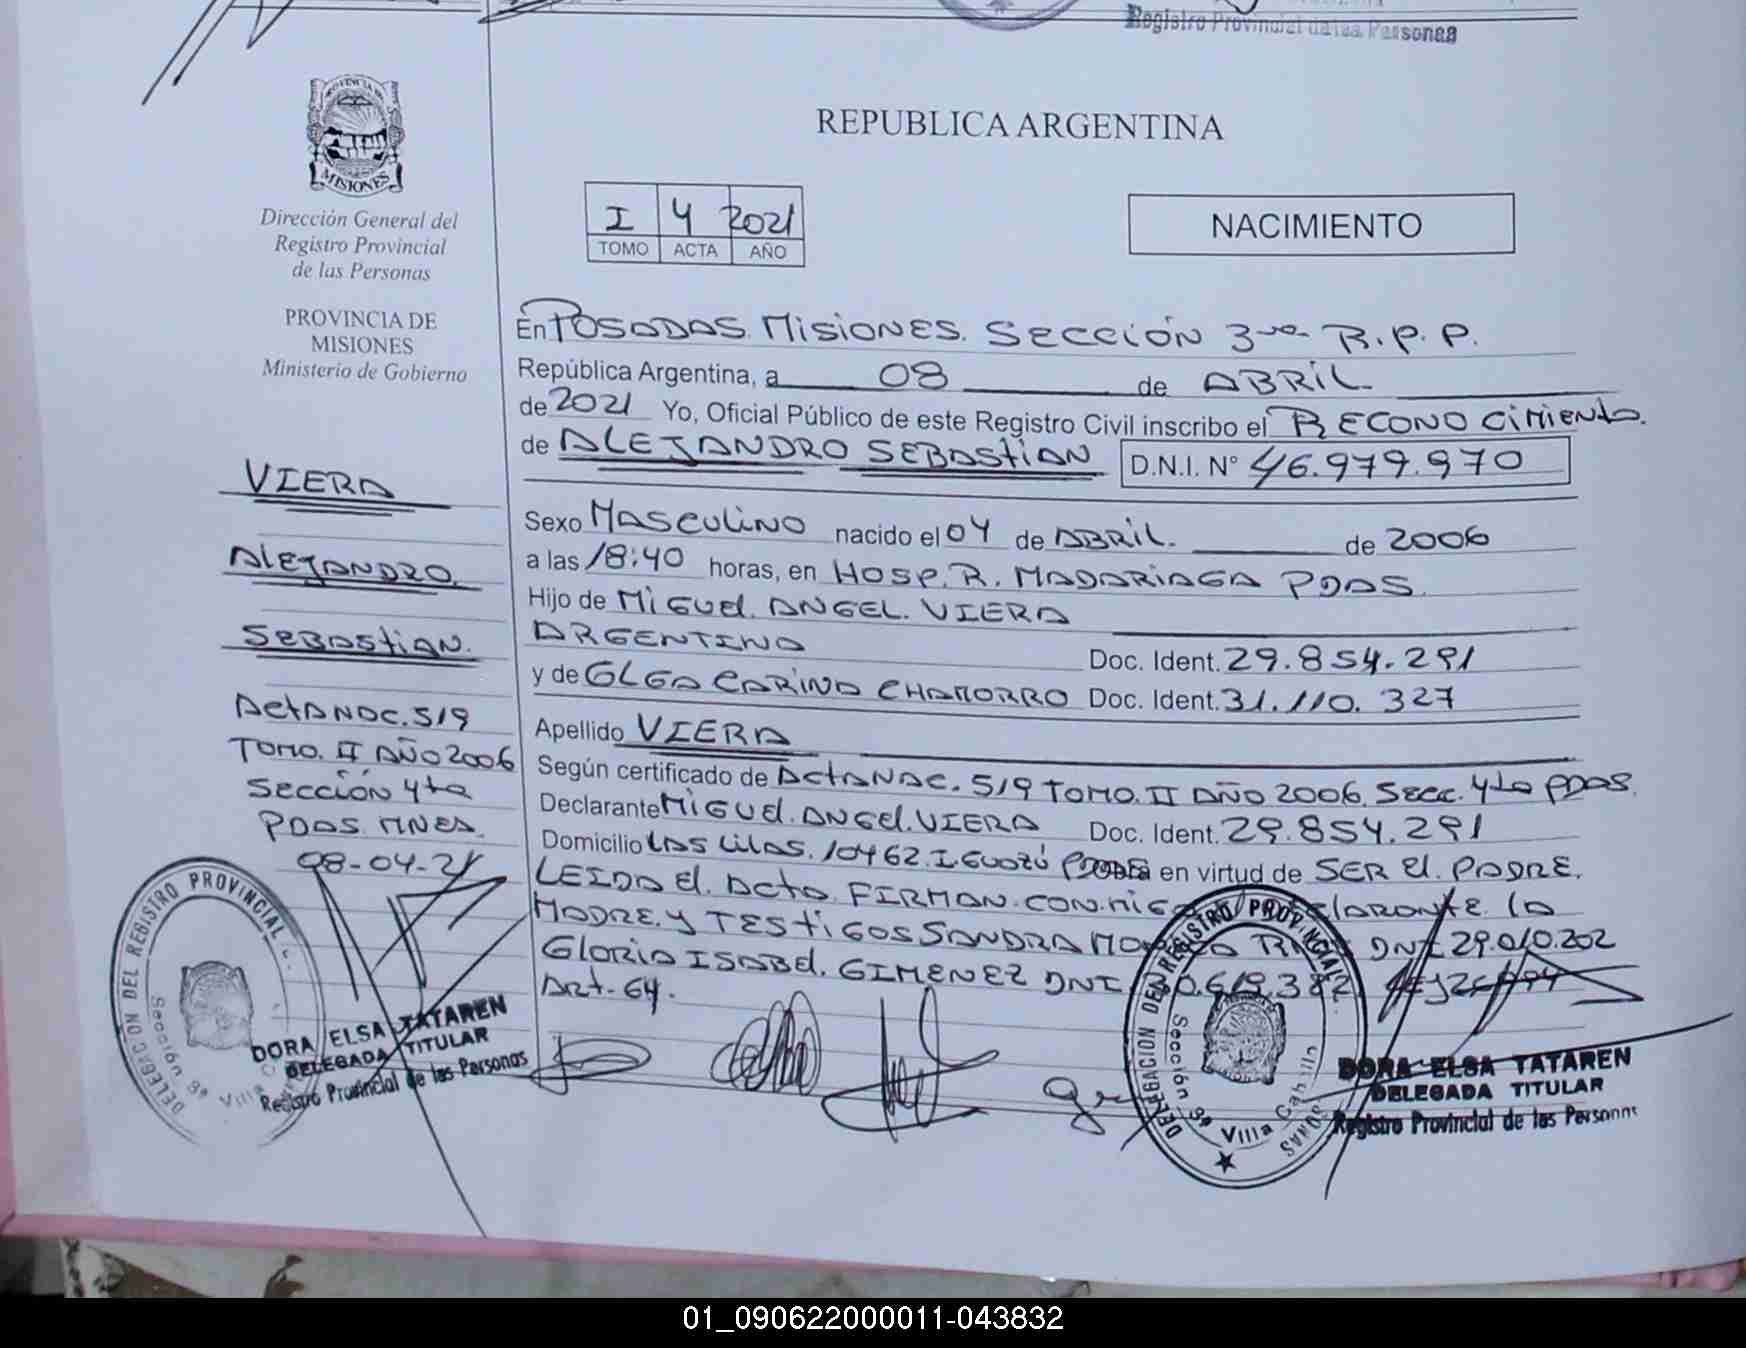 Registro Provincial de las Personas
PROVINCIA DE
MISIONES
Dirección General del
Registro Provincial
de las Personas
PROVINCIA DE
MISIONES
Ministerio de Gobierno
REPUBLICA ARGENTINA
I 4 2021
TOMO ACTA AÑO
NACIMIENTO
En POSADAS. MISIONES. SECCIÓN 3ra R.P.P.
República Argentina, a 08 de ABRIL
de 2021 Yo, Oficial Público de este Registro Civil inscribo el RECONOCIMIENTO.
de ALEJANDRO SEBASTIAN D.N.I. N° 46.979.970
Sexo MASCULINO nacido el 04 de ABRIL. de 2006
a las 18:40 horas, en HOSP. R. MADARIAGA PDAS.
Hijo de MIGUEL. ANGEL. VIERA
ARGENTINO Doc. Ident. 29.854.291
y de OLGA CARINA CHAMORRO Doc. Ident. 31.110.327
Apellido VIERA
Según certificado de ACTA NAC. 519 TOMO. II AÑO 2006. SECC. 4ta PDAS.
Declarante MIGUEL. ANGEL. VIERA Doc. Ident. 29.854.291
Domicilio LAS LILAS. 10462. I. GUAZÚ PDAS en virtud de SER EL PADRE.
LEIDA EL ACTA. FIRMAN CON MIGO DECLARANTE LA
MADRE. Y TESTIGOS SANDRA DNI 29.010.202
GLORIA ISABEL. GIMENEZ DNI
Art. 64.
VIERA
ALEJANDRO.
SEBASTIAN.
ACTA NAC. 519
TOMO. II AÑO 2006
SECCIÓN 4ta
PDAS. MNES.
08-04-21
DELEGACIÓN DEL REGISTRO PROVINCIAL
Sección 3ª Villa
DORA ELSA TATAREN
DELEGADA TITULAR
Registro Provincial de las Personas
DELEGACION DEL REGISTRO PROVINCIAL
Sección 3ª Villa Cabello
DORA ELSA TATAREN
DELEGADA TITULAR
Registro Provincial de las Personas
01_090622000011-043832